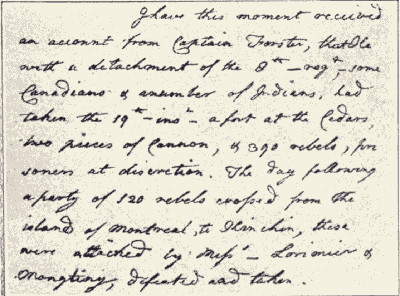 I have this moment received
an account from Captain Forster, that He
with a detachment of the 8th — regt — some
Canadians & a number of Indians, had
taken the 19th — inst — a fort at the Cedars,
two pieces of Cannon, & 390 rebels, pri
soners at discretion. The day following
a party of 120 rebels crossed from the
island of Montreal, to
were attacked by Messrs — Lorimier &
defeated and taken.